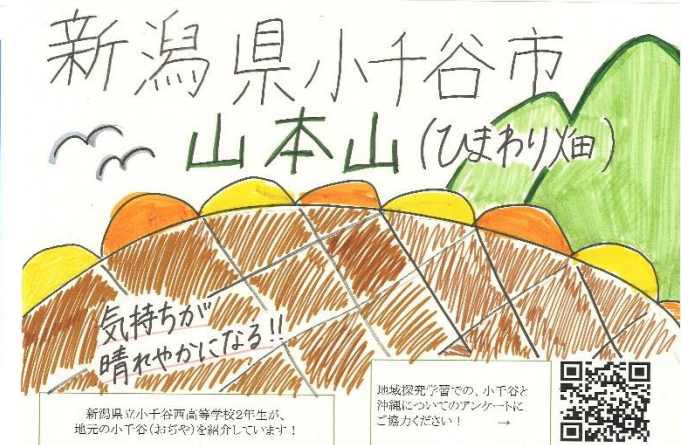 新潟県小千谷市
山本山(ひまわり畑)
気持ちが
晴れやかになる!!
新潟県立小千谷西高等学校2年生が、
地元の小千谷(おぢや)を紹介しています!
地域探究学習での、小千谷と
沖縄についてのアンケートに
ご協力ください! →